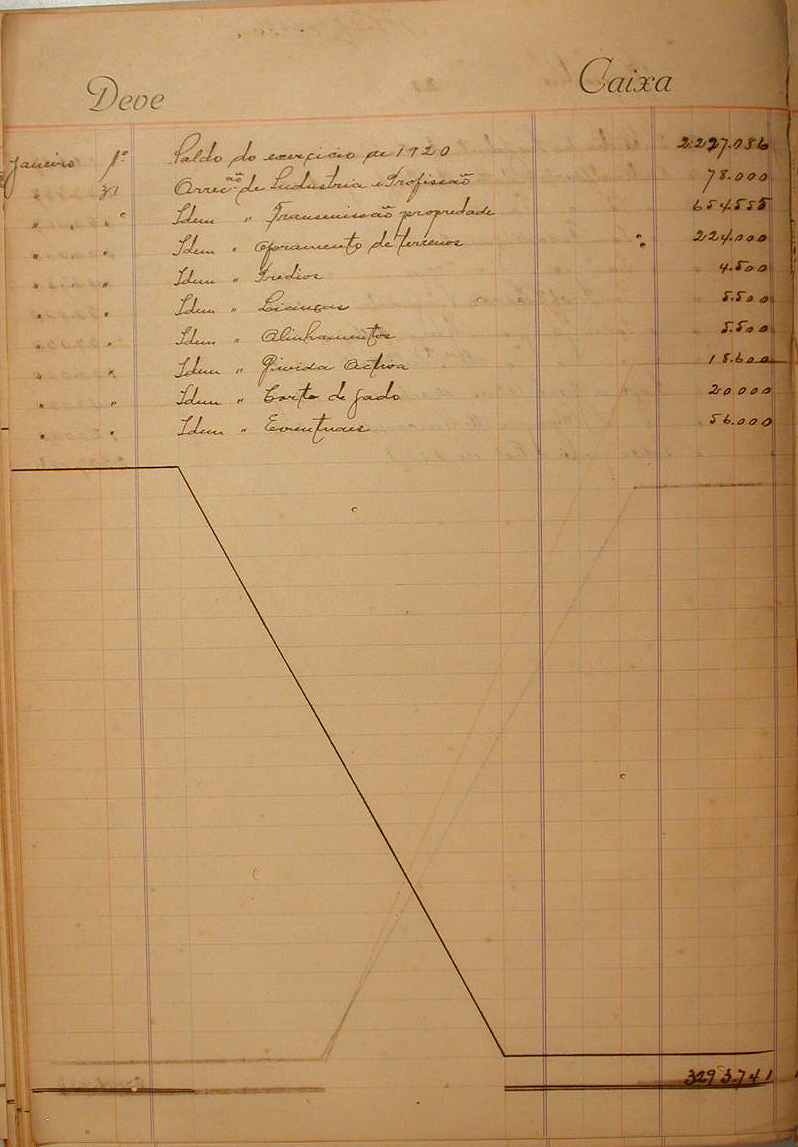 Deve Caixa
Janeiro 1º Saldo do exercicio de 1920 2.227.086
" 31 Arrecão de Industria e Profissão 78.000
" " Idem " Transmissão propredade 654.555
" " Idem " Aforamento de terrenos 224.000
" " Idem " Predios 4.500
" " Idem " Licenças 5.500
" " Idem " Alinhamentos 5.500
" " Idem " Divida Activa 18.600
" " Idem " Corte de gado 20000
" " Idem " Eventuaes 56.000
3293.741